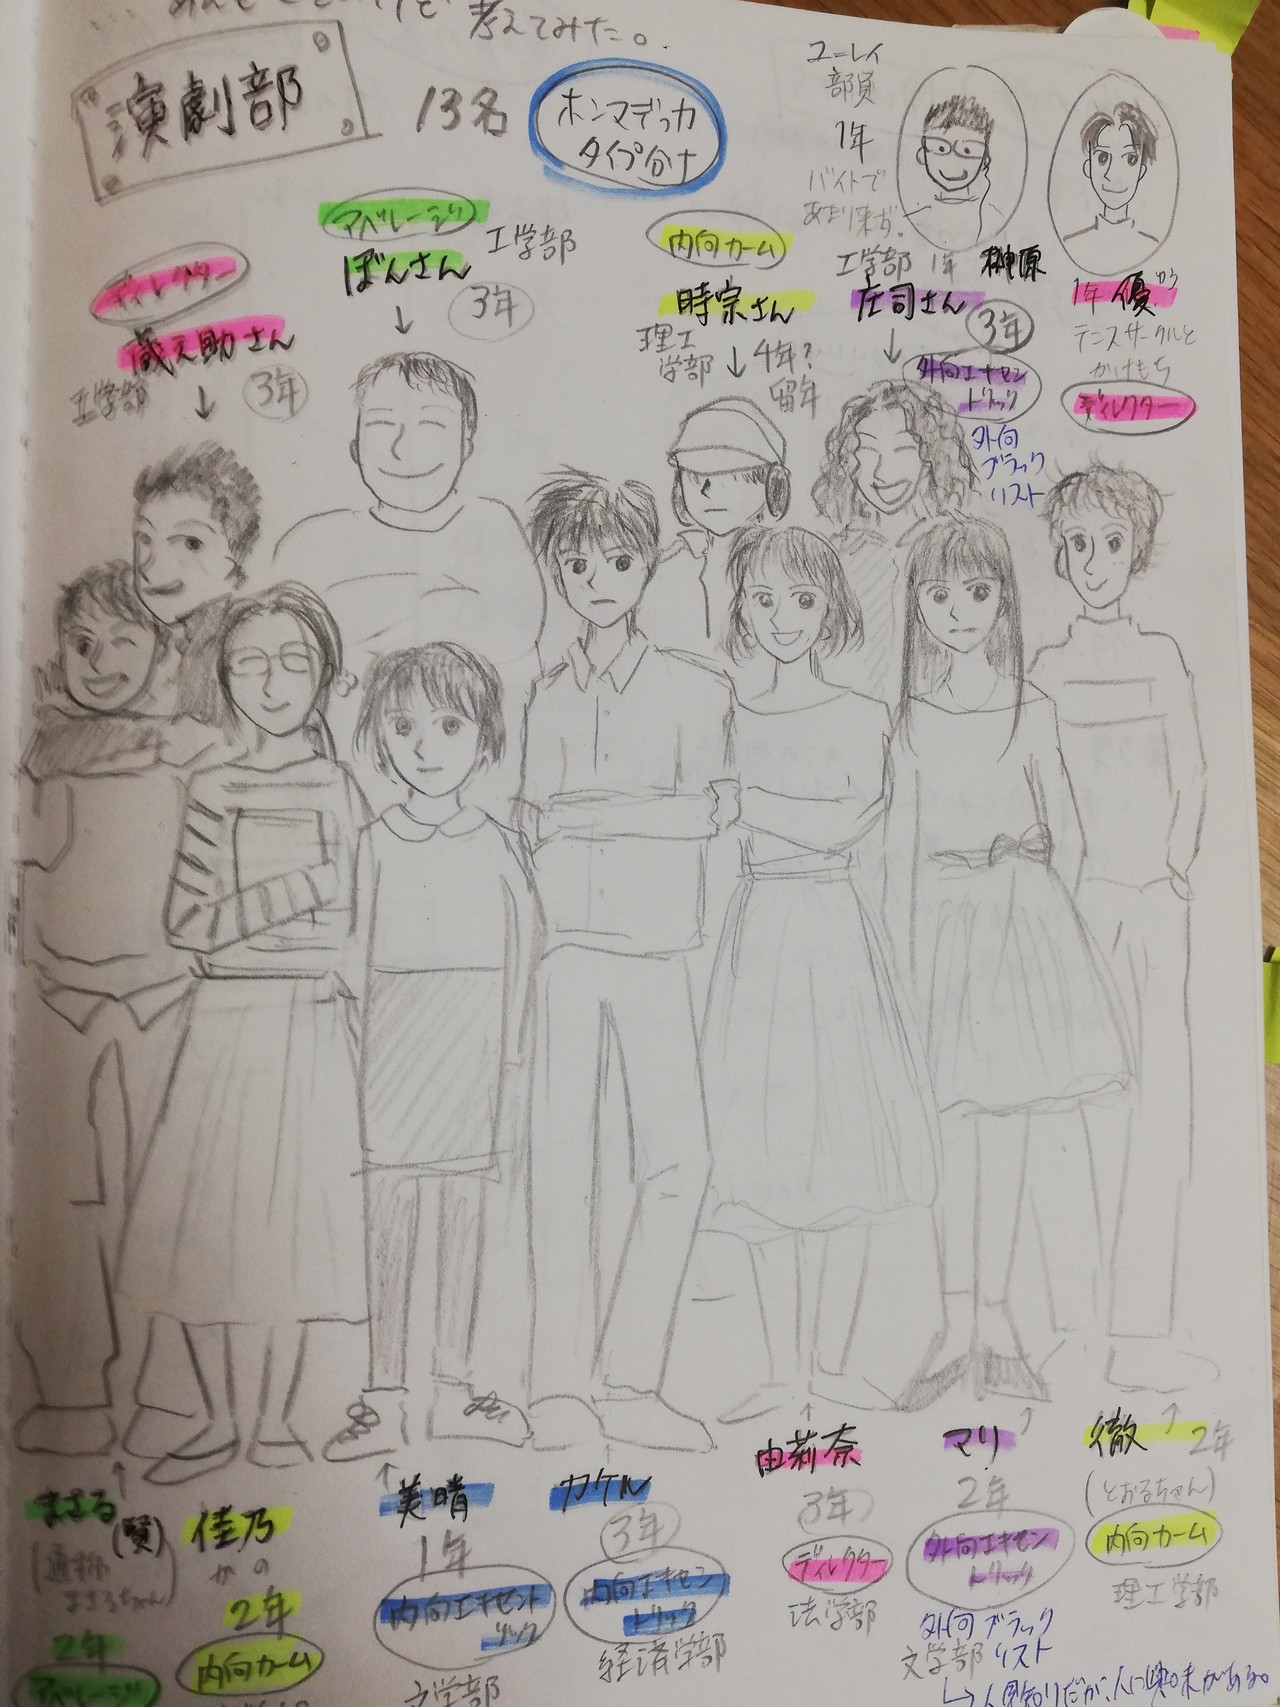 考えてみた。
演劇部
13名
ホンマデッカ
タイプ分け
ユーレイ
部員
1年
バイトで
あまり来ず。
工学部 1年 榊原
1年 優
ゆう
テニスサークルと
かけもち
ディレクター
ディレクター
蔵之助さん
工学部
3年
アベレージ
ぼんさん
工学部
3年
内向カーム
時宗さん
理工
学部
4年?
留年
庄司さん
3年
外向エキセン
トリック
外向
ブラック
リスト
まさる
(賢)
(通称
まさるちゃん)
2年
アベレージ
佳乃
かの
2年
内向カーム
美晴
1年
内向エキセント
リック
文学部
カケル
3年
内向エキセン
トリック
経済学部
由莉奈
3年
ディレクター
法学部
マリ
2年
外向エキセン
トリック
外向ブラック
リスト
文学部
人見知りだが、人に興味がある。
徹 2年
(とおるちゃん)
内向カーム
理工学部